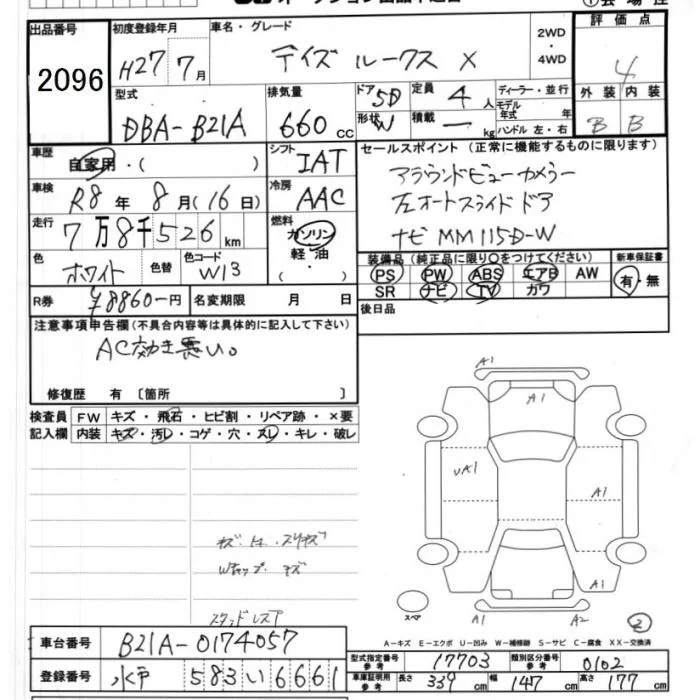 出品番号 初度登録年月 車名・グレード 2WD・4WD 評価点
2096 H27 7月 デイズ ルークス X 4
型式 排気量 ドア 5D 定員 4人 ディーラー・並行 外装 内装
DBA-B21A 660cc 形状 W 積載 — kg モデル年式 年 ハンドル 左・右 B B
車歴 自家用・( ) シフト IAT セールスポイント(正常に機能するものに限ります)
車検 R8年 8月(16日) 冷房 AAC アラウンドビューカメラー
走行 7万8千526km 燃料 ガソリン 軽・油 ( ・ ) 左オートスライドドア
色 ホワイト 色替 色コード W13 ナビ MM115D-W
装備品(純正品に限り○をつけてください) 新車保証書
PS PW ABS エアB AW 有・無
SR ナビ TV カワ
R券 ¥8860-円 名変期限 月 日 後日品
注意事項申告欄(不具合内容等は具体的に記入して下さい)
AC効き悪い。
修復歴 有 〔箇所 〕
検査員 FW キズ・飛石・ヒビ割・リペア跡・×要
記入欄 内装 キズ・汚レ・コゲ・穴・スレ・キレ・破レ
A1
A1
UA1
A1
A1
A1 A2
スペア
2
Wキャップ キズ
A-キズ E-エクボ U-凹み W-補修跡 S-サビ C-腐食 XX-交換済
車台番号 B21A-0174057
型式指定番号 参考 17703 類別区分番号 参考 0102
登録番号 水戸 583 い 6661
車庫証明用 参考 長さ 339cm 幅 147cm 高さ 177cm